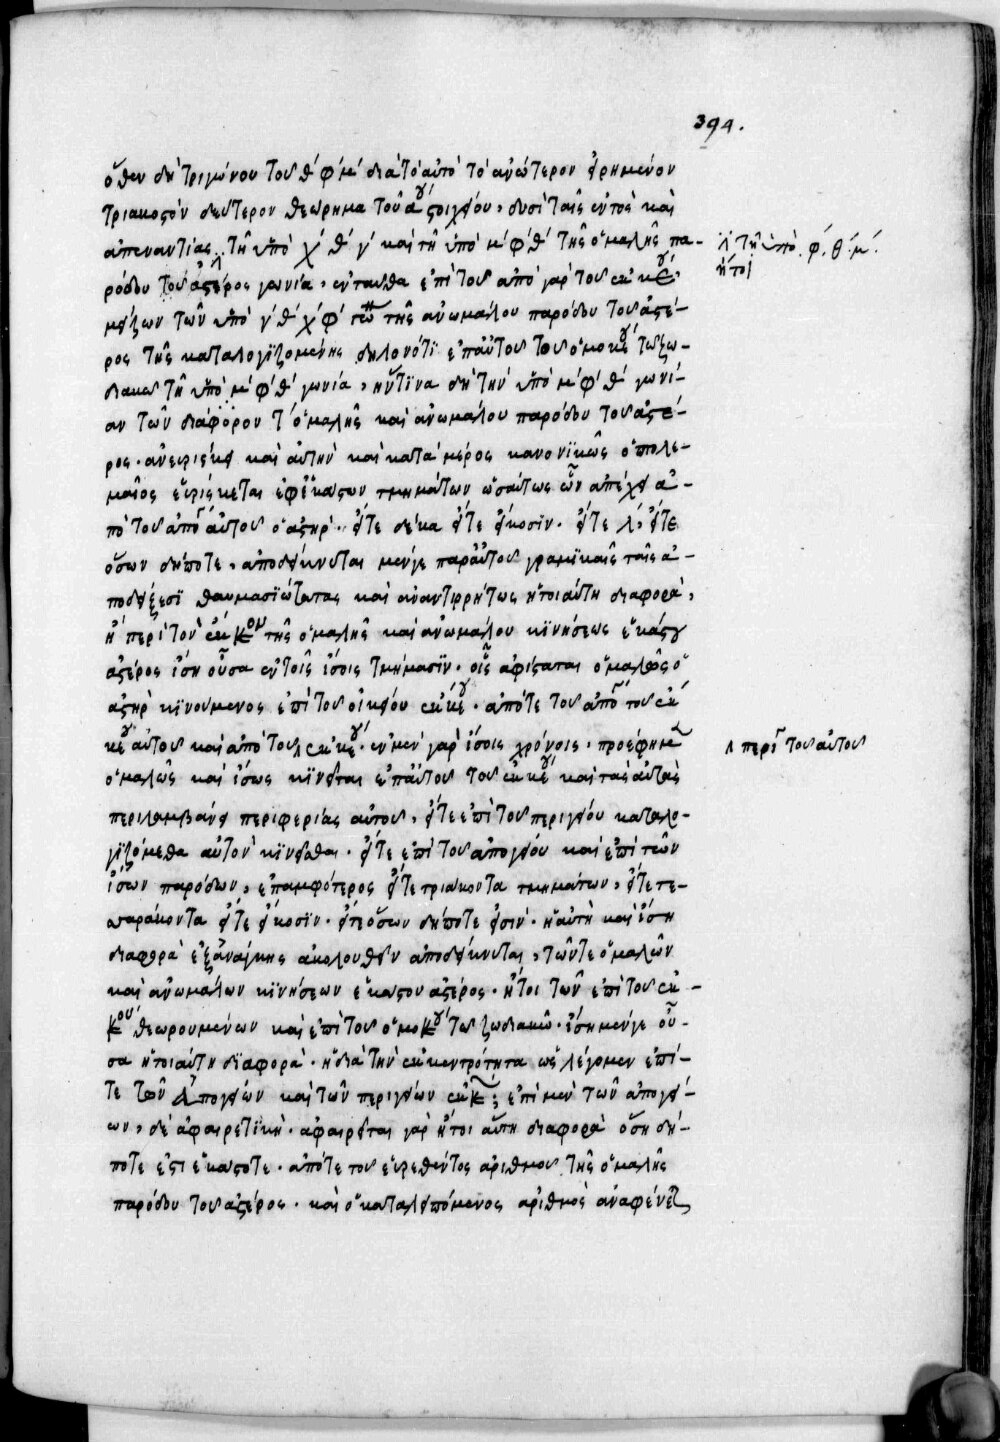 394.
ὅθεν δὴ τριγώνου τοῦ θ' φ' μ' διὰ τὸ αὐτὸ τὸ ἀνώτερον εἰρημένον
τριακοστὸν δεύτερον θεώρημα τοῦ α^ου στοιχείου, δυσὶ ταῖς ἐντὸς καὶ
ἀπεναντίας τῇ ὑπὸ χ' θ' γ' καὶ τῇ ὑπὸ μ' φ' θ' τῆς ὁμαλῆς πα-
ρόδου τοῦ ἀστέρος γωνία, ἐνταῦθα ἐπὶ τοῦ ἀπὸ γὰρ τοῦ ἐκκ^ου
μείζων τῶν ὑπὸ γ' θ' χ' φ' τῆς ἀνωμάλου παρόδου τοῦ ἀστέ-
ρος τῆς καταλογϊζομένης δηλονότι ἐπ' αὐτοῦ τοῦ ὁμοκ^ου τῷ ζω-
διακῷ τῇ ὑπὸ μ' φ' θ' γωνία, ἥντϊνα δὴ τὴν ὑπὸ μ' φ' θ' γωνί-
αν τῶν διάφορον τ' ὁμαλῆς καὶ ἀνωμάλου παρόδου τοῦ ἀστέ-
ρος. καὶ αὐτὴν καὶ κατὰ μέρος κανονϊκῶς ὁ πτολε-
μαῖος εὑρίσκεται ἐφ' ἑκάστων τμημάτων ὡσαύτως ὧν ἀπέχει ἀ-
πὸ τοῦ ἀπογ αὐτοῦ ὁ ἀστὴρ. εἴτε δέκα εἴτε εἴκοσϊν. εἴτε λ', εἴτε
ὅσων δήποτε, ἀποδείκνυται μένγε παρ' αὐτοῦ γραμϊκαῖς ταῖς ἀ-
ποδείξεσϊ θαυμασϊώτατας καὶ ἀναντιρρήτως ἡ τοιαύτη διαφορὰ,
ἡ περὶ τὸν ἔκκ^ον τῆς ὁμαλῆς καὶ ἀνωμάλου κϊνήσεως ἑκάστου
ἀστέρος ἴση οὖσα ἐν τοῖς ἴσοις τμήμασϊν. οἷς ἀφίσταται ὁμαλῶς ὁ
ἀστὴρ κϊνούμενος ἐπὶ τοῦ οἰκείου ἐκκέ^ου. ἀπό τε τοῦ ἀπογ τοῦ ἐκ
κέ^ου αὐτοῦ καὶ ἀπὸ τοῦ ἐκκέ^ου. ἐν μὲν γὰρ ἴσοις χρόνοις. προέφημεν
ὁμαλῶς καὶ ἴσως κϊνεῖται ἐπ' αὐτοῦ τοῦ ἐκκέ^ου καὶ τὰς αὐτὰς
περιλαμβάνει περιφερίας αὐτοῦ, εἴτε ἐπὶ τοῦ περιγείου καταλο-
γϊζόμεθα αὐτὸν κϊνεῖσθαι. εἴτε ἐπὶ τοῦ ἀπογείου καὶ ἐπὶ τῶν
ἴσων παρόδων, ἐπαμφότερος εἴτε τριάκοντα τμημάτων, εἴτε τε-
σσαράκοντα εἴτε εἴκοσϊν. εἴτε ὅσων δήποτε εἰσὶν. ἡ αὐτὴ καὶ ἴση
διαφορὰ ἐξ ἀνάγκης ἀκολουθεῖν ἀποδείκνυται, τῶν τε ὁμαλῶν
καὶ ἀνωμάλων κϊνήσεων ἑκάστου ἀστέρος. ἤτοι τῶν ἐπὶ τοῦ ἐκ-
κ^ου θεωρουμένων καὶ ἐπὶ τοῦ ὁμοκ^ου τῷ ζωδιακῷ. ἴση μένγε οὖ-
σα ἡ τοιαύτη δϊαφορὰ. ἡ διὰ τὴν ἐκκεντρότητα ὡς λέγομεν ἐπί-
τε τῶν ἀπογείων καὶ τῶν περιγείων ἐκκ; ἐπὶ μὲν τῶν ἀπογεί-
ων, δὲ ἀφαιρετϊκὴ. ἀφαιρεῖται γὰρ ἤτοι αὕτη διαφορὰ ὅση δή-
ποτε ἐστι ἑκάστοτε. ἀπό τε τοῦ εὑρεθέντος ἀριθμοῦ τῆς ὁμαλῆς
παρόδου τοῦ ἀστέρος. καὶ ὁ καταλειπόμενος ἀριθμὸς
λ τῇ ὑπὸ. φ'. θ'. μ'.
ἤτοι
λ περὶ τοῦ αὐτοῦ